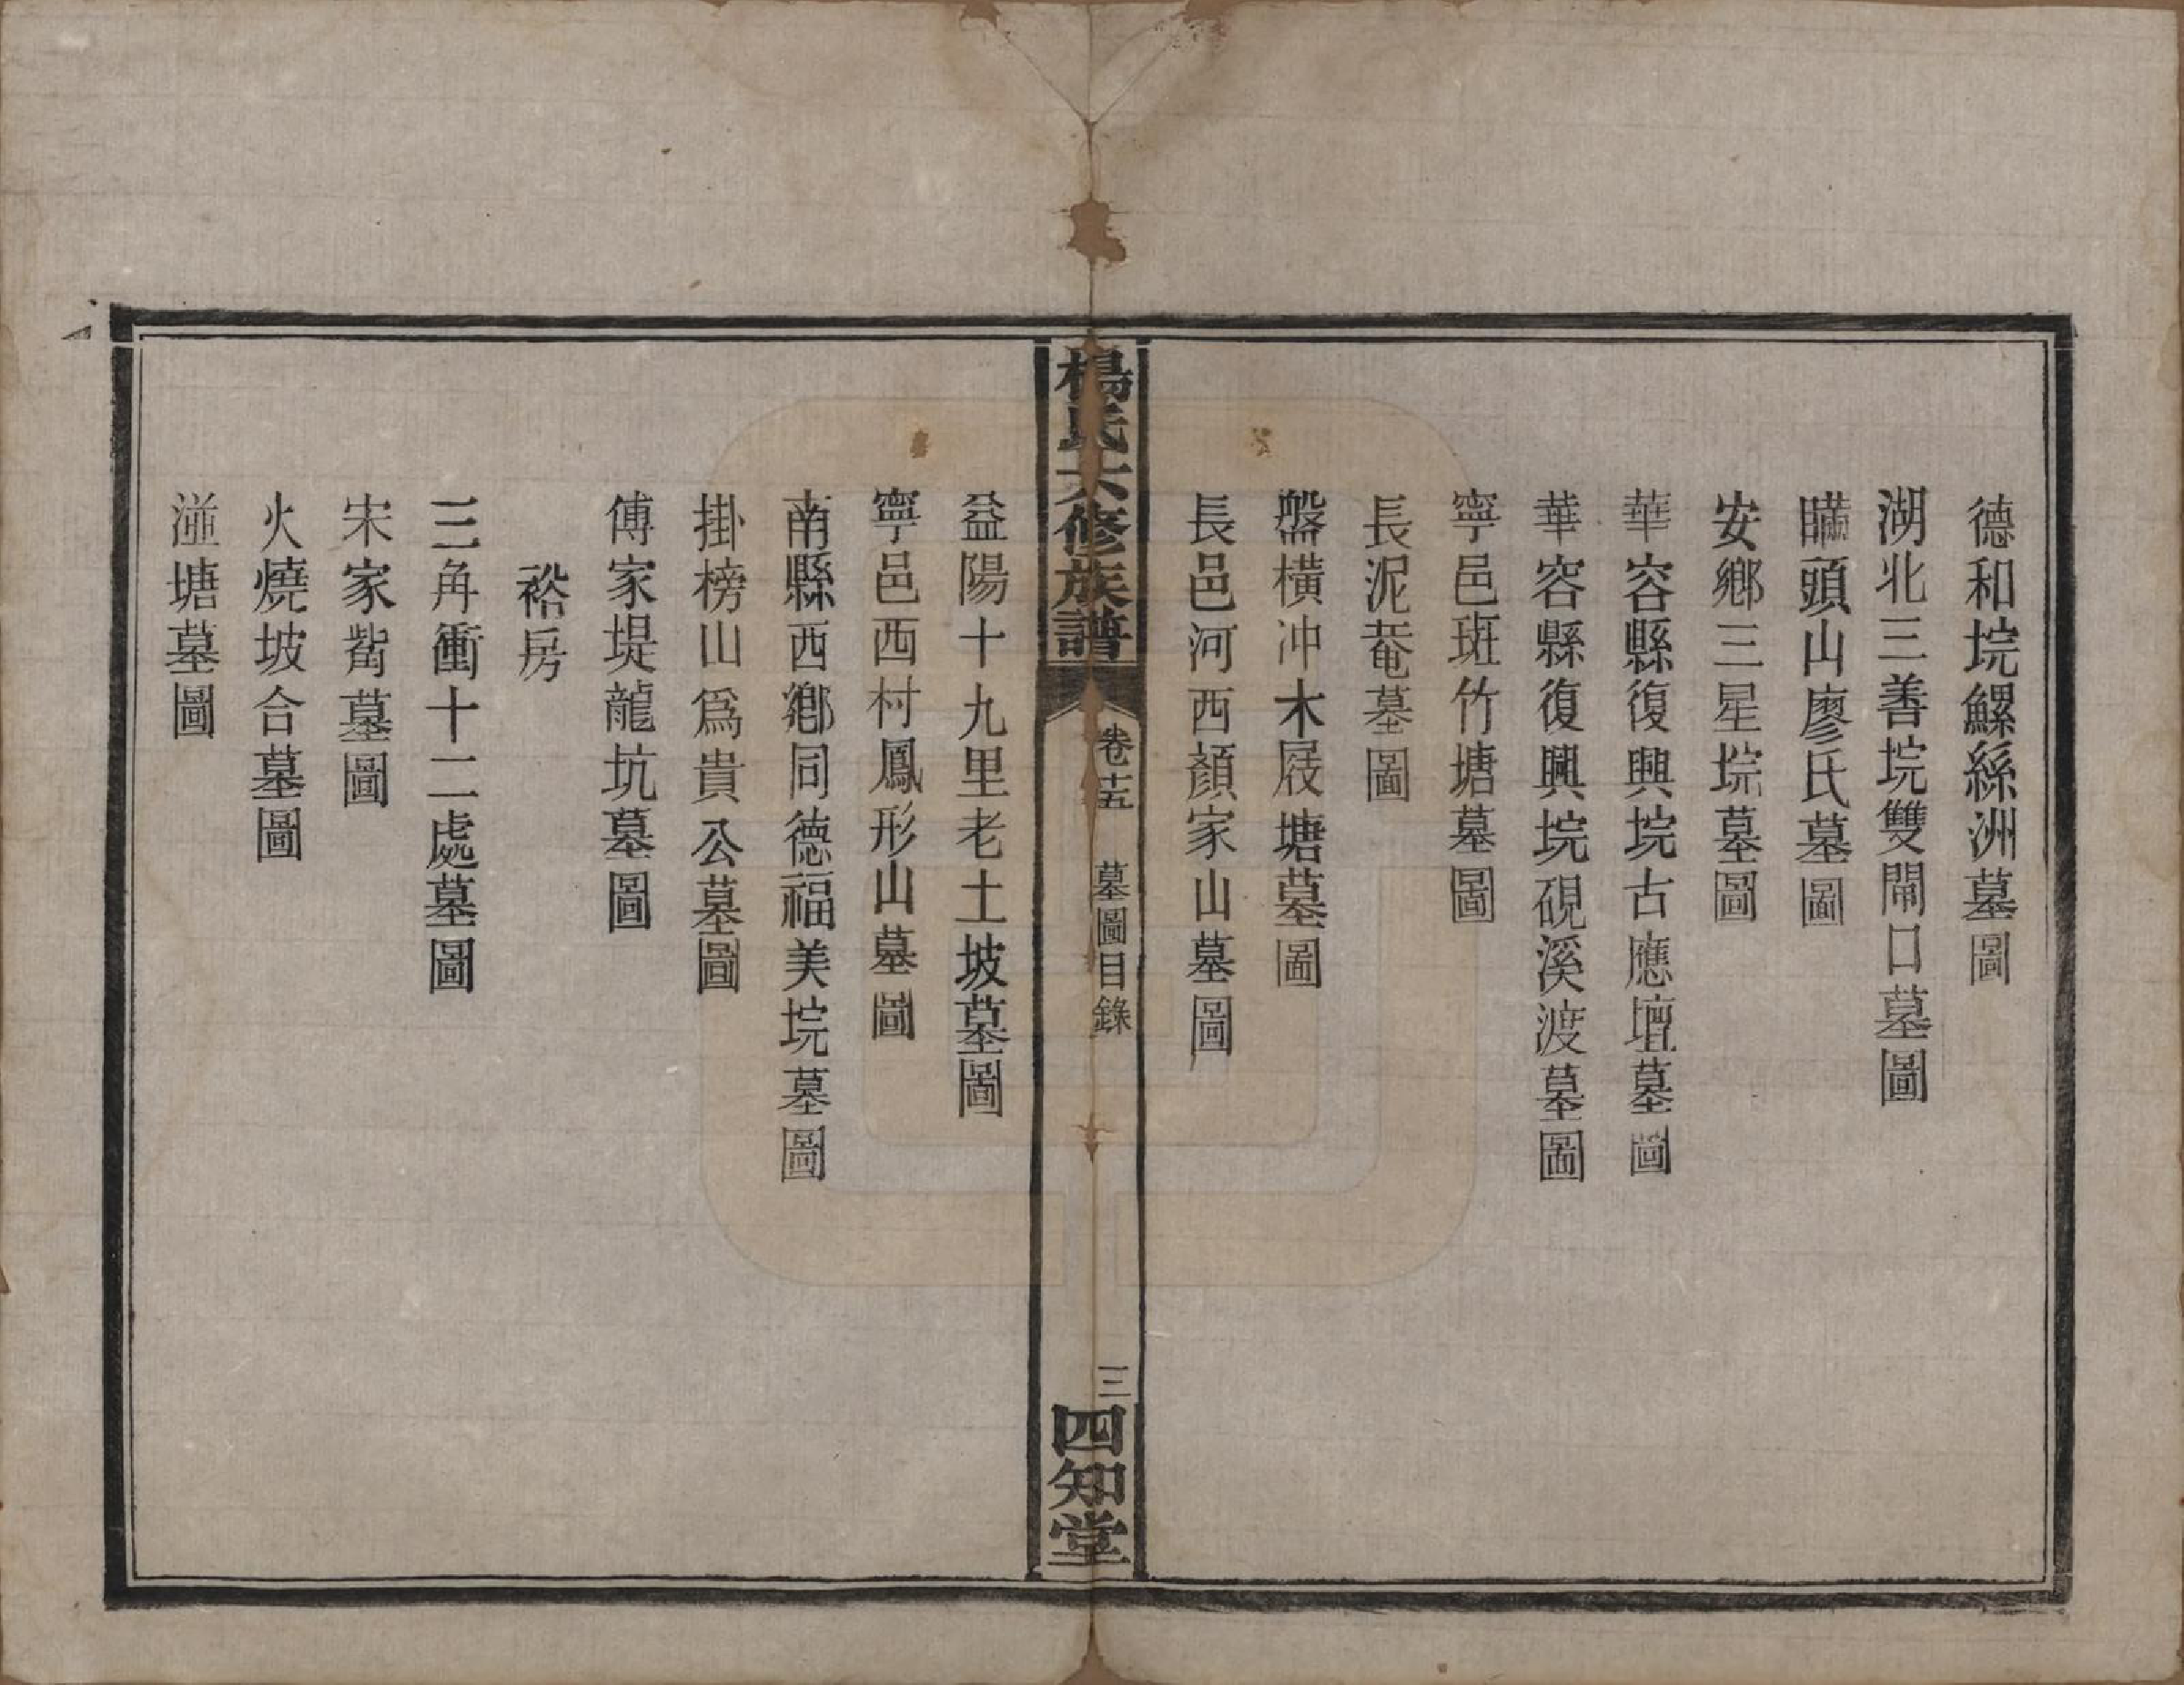 德和垸鰥絲洲墓圖
湖北三善垸雙閘口墓圖
頭山廖氏墓圖
安鄉三星垸墓圖
華容縣復興垸古應壇墓圖
華容縣復興垸硯溪渡墓圖
寧邑斑竹塘墓圖
長泥菴墓圖
盤橫冲木屐塘墓圖
長邑河西顏家山墓圖
楊氏六修族譜
卷十五 墓圖目錄
三
四知堂
益陽十九里老土坡墓圖
寧邑西村鳳形山墓圖
南縣西鄉同德福美垸墓圖
掛榜山爲貴公墓圖
傅家堤龍坑墓圖
裕房
三角衝十二處墓圖
宋家嵛墓圖
火燒坡合墓圖
塘墓圖